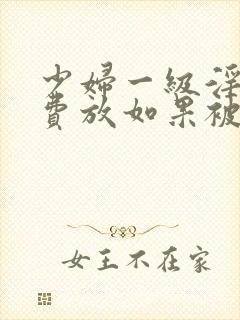 少婦一級淫
費放如果被
女王不在家